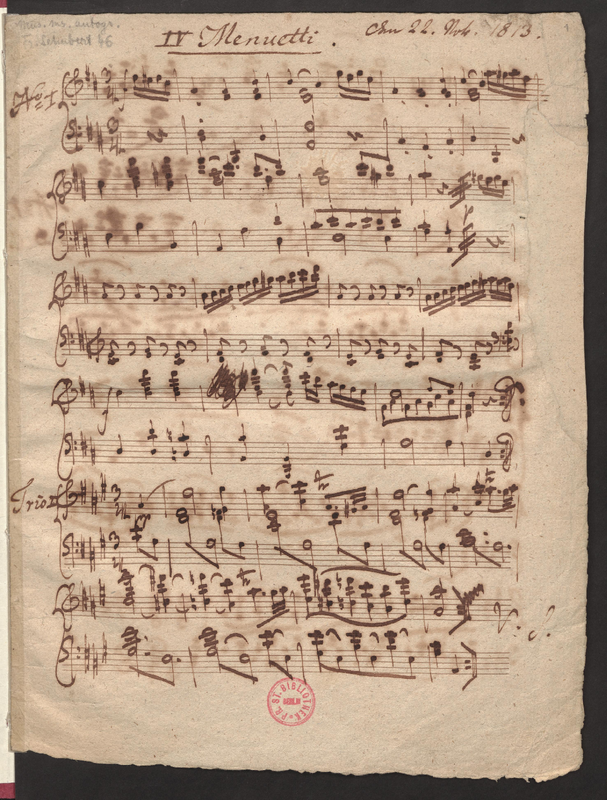 Mus. ms. autogr.
F. Schubert 66
IV Menuetti.
den 22. Nov. 1813.
No 1
Trio
V. S.
PR. ST. BIBLIOTHEK
BERLIN